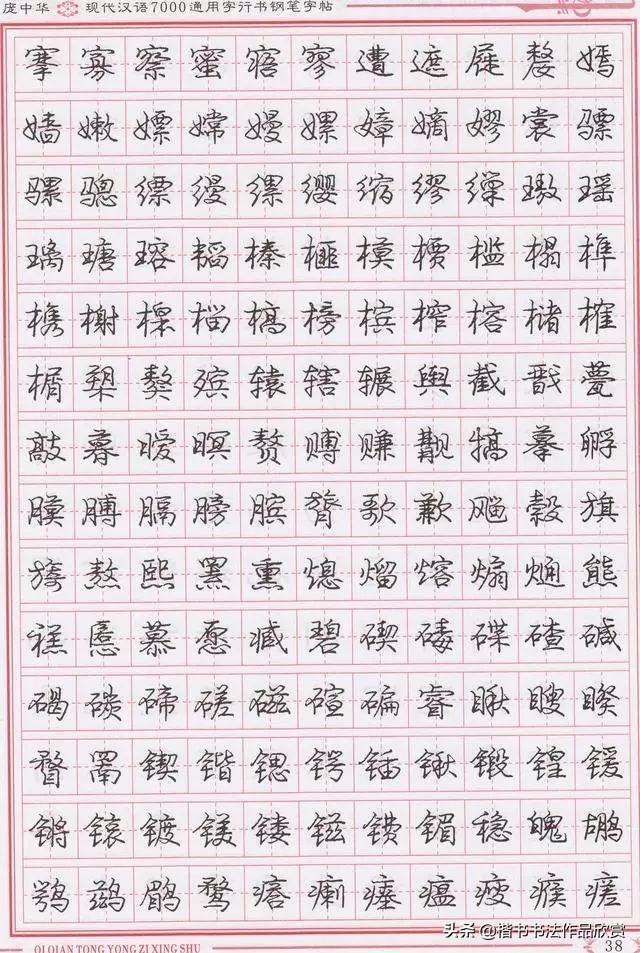 庞中华 现代汉语7000通用字行书钢笔字帖
搴寡察蜜寤寥遭遮屣嫠嫣
嫱嫩嫖嫦嫚嫘嫜嫡嫪裳骠
骡骢缥缦缧缨缩缪缫璈瑶
璃瑭瑢韬榛榧模槚槛榻榫
槜榭槔榴槁榜槟榨榕槠榷
榍槊獒殡辕辖辗舆截戬甍
敲暮暧暝赘赙赚觏犒摹孵
膜膊膈膀膑膂歌歉旗
旖熬熙罴熏熄熘熔煽熥熊
慝慕愿臧碧碶碡碟碴碱
碣碳碲磋磁碹碥睿瞅瞍睽
瞀罱锲锴锶锷锸锹锻锽锾
锵锿镀镁镂镃镄镅稳魄鹕
鹗鹚鹛鹜瘩瘌瘗瘟瘦瘊瘥
头条 @楷书书法作品欣赏
QI QIAN TONG YONG ZI XING SHU 38